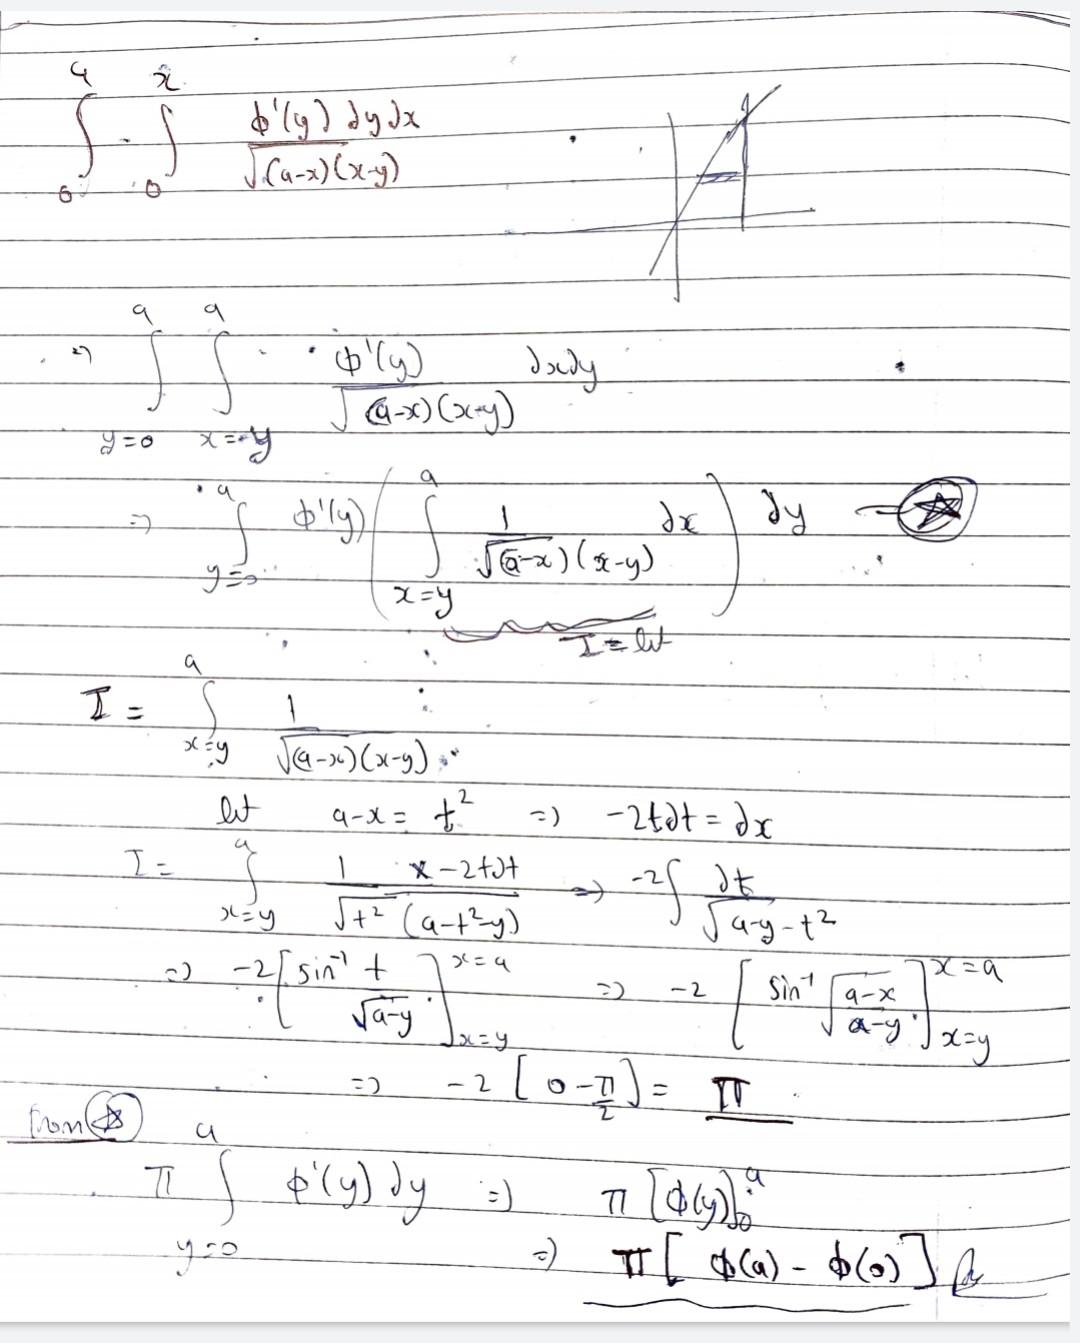 ∫₀^a ∫₀^x φ'(y) dy dx / √(a-x)(x-y)
=> ∫_{y=0}^a ∫_{x=y}^a φ'(y) / √(a-x)(x-y) dx dy
=> ∫_{y=0}^a φ'(y) ( ∫_{x=y}^a 1 / √(a-x)(x-y) dx ) dy — ⍟
I = let
I = ∫_{x=y}^a 1 / √(a-x)(x-y)
let a-x = t² => -2tdt = dx
I = ∫_{x=y}^a 1 / √t²(a-t²-y) x -2tdt => -2∫ dt / √a-y-t²
=> -2 [ sin⁻¹ t / √a-y ]_{x=y}^{x=a} => -2 [ sin⁻¹ √(a-x / a-y) ]_{x=y}^{x=a}
=> -2 [ 0 - π/2 ] = π
from ⍟
π ∫_{y=0}^a φ'(y) dy => π [φ(y)]₀^a
=> π [ φ(a) - φ(0) ]